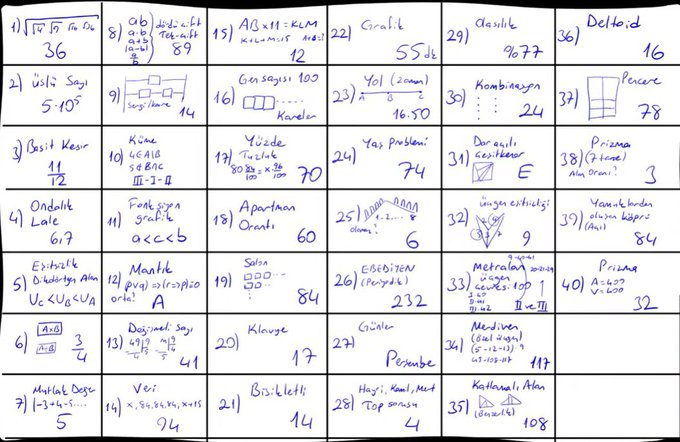 1) √√4 √9 √16 √36
36
2) üslü Sayı
5·10⁵
3) Basit Kesir
11/12
4) Ondalık
Lale
6,7
5) Eşitsizlik
Dikdörtgen Alan
U_C < U_B < U_A
6) A×B
3/4
7) Mutlak Değer
|-3+4-5....
5
8) ab
a·b
a+b
|a-b|
a/b
dördü çift
Tek-çift
89
9) Sergi/kare
14
10) Küme
4∈A\B
5∉B∩C
III-I-II
11) Fonksiyon
grafik
a<c<b
12) Mantık
(pvq)⇒(r⇒p)
orta?
A
13) Değişmeli Sayı
41
14) Veri
x, 84, 84, 84, x+15
94
15) AB×11=KLM
K+L+M=15
12
16) Gen sayısı 100
Kareler
17) Yüzde
Tuzluk
80 84/100 = x·96/100
70
18) Apartman
Orantı
60
19) Salon
84
20) Klavye
17
21) Bisikletli
14
22) Grafik
55 dk
23) Yol (zaman)
A B C
16.50
24) Yaş Problemi
74
25) 1..2,... 8
6
26) EBEDİYEN
(Periyodik)
232
27) Günler
Perşembe
28) Hayri, Kamil, Mert
Top sorusu
4
29) Olasılık
%77
30) Kombinasyon
24
31) Dar açılı
Çeşitkenar
E
32) üçgen eşitsizliği
9
33) Metralan
üçgen
Çevresi 100
II ve III
34) Merdiven
(özel üçgen)
(5-12-13)·9
45-108-117
117
35) Katlamalı Alan
(Benzerlik)
108
36) Deltoid
16
37) Pencere
78
38) Prizma
(7 tane)
Alan Oranı?
3
39) Yamuklardan
oluşan köprü
(Açı)
84
40) Prizma
A=400
V=400
32